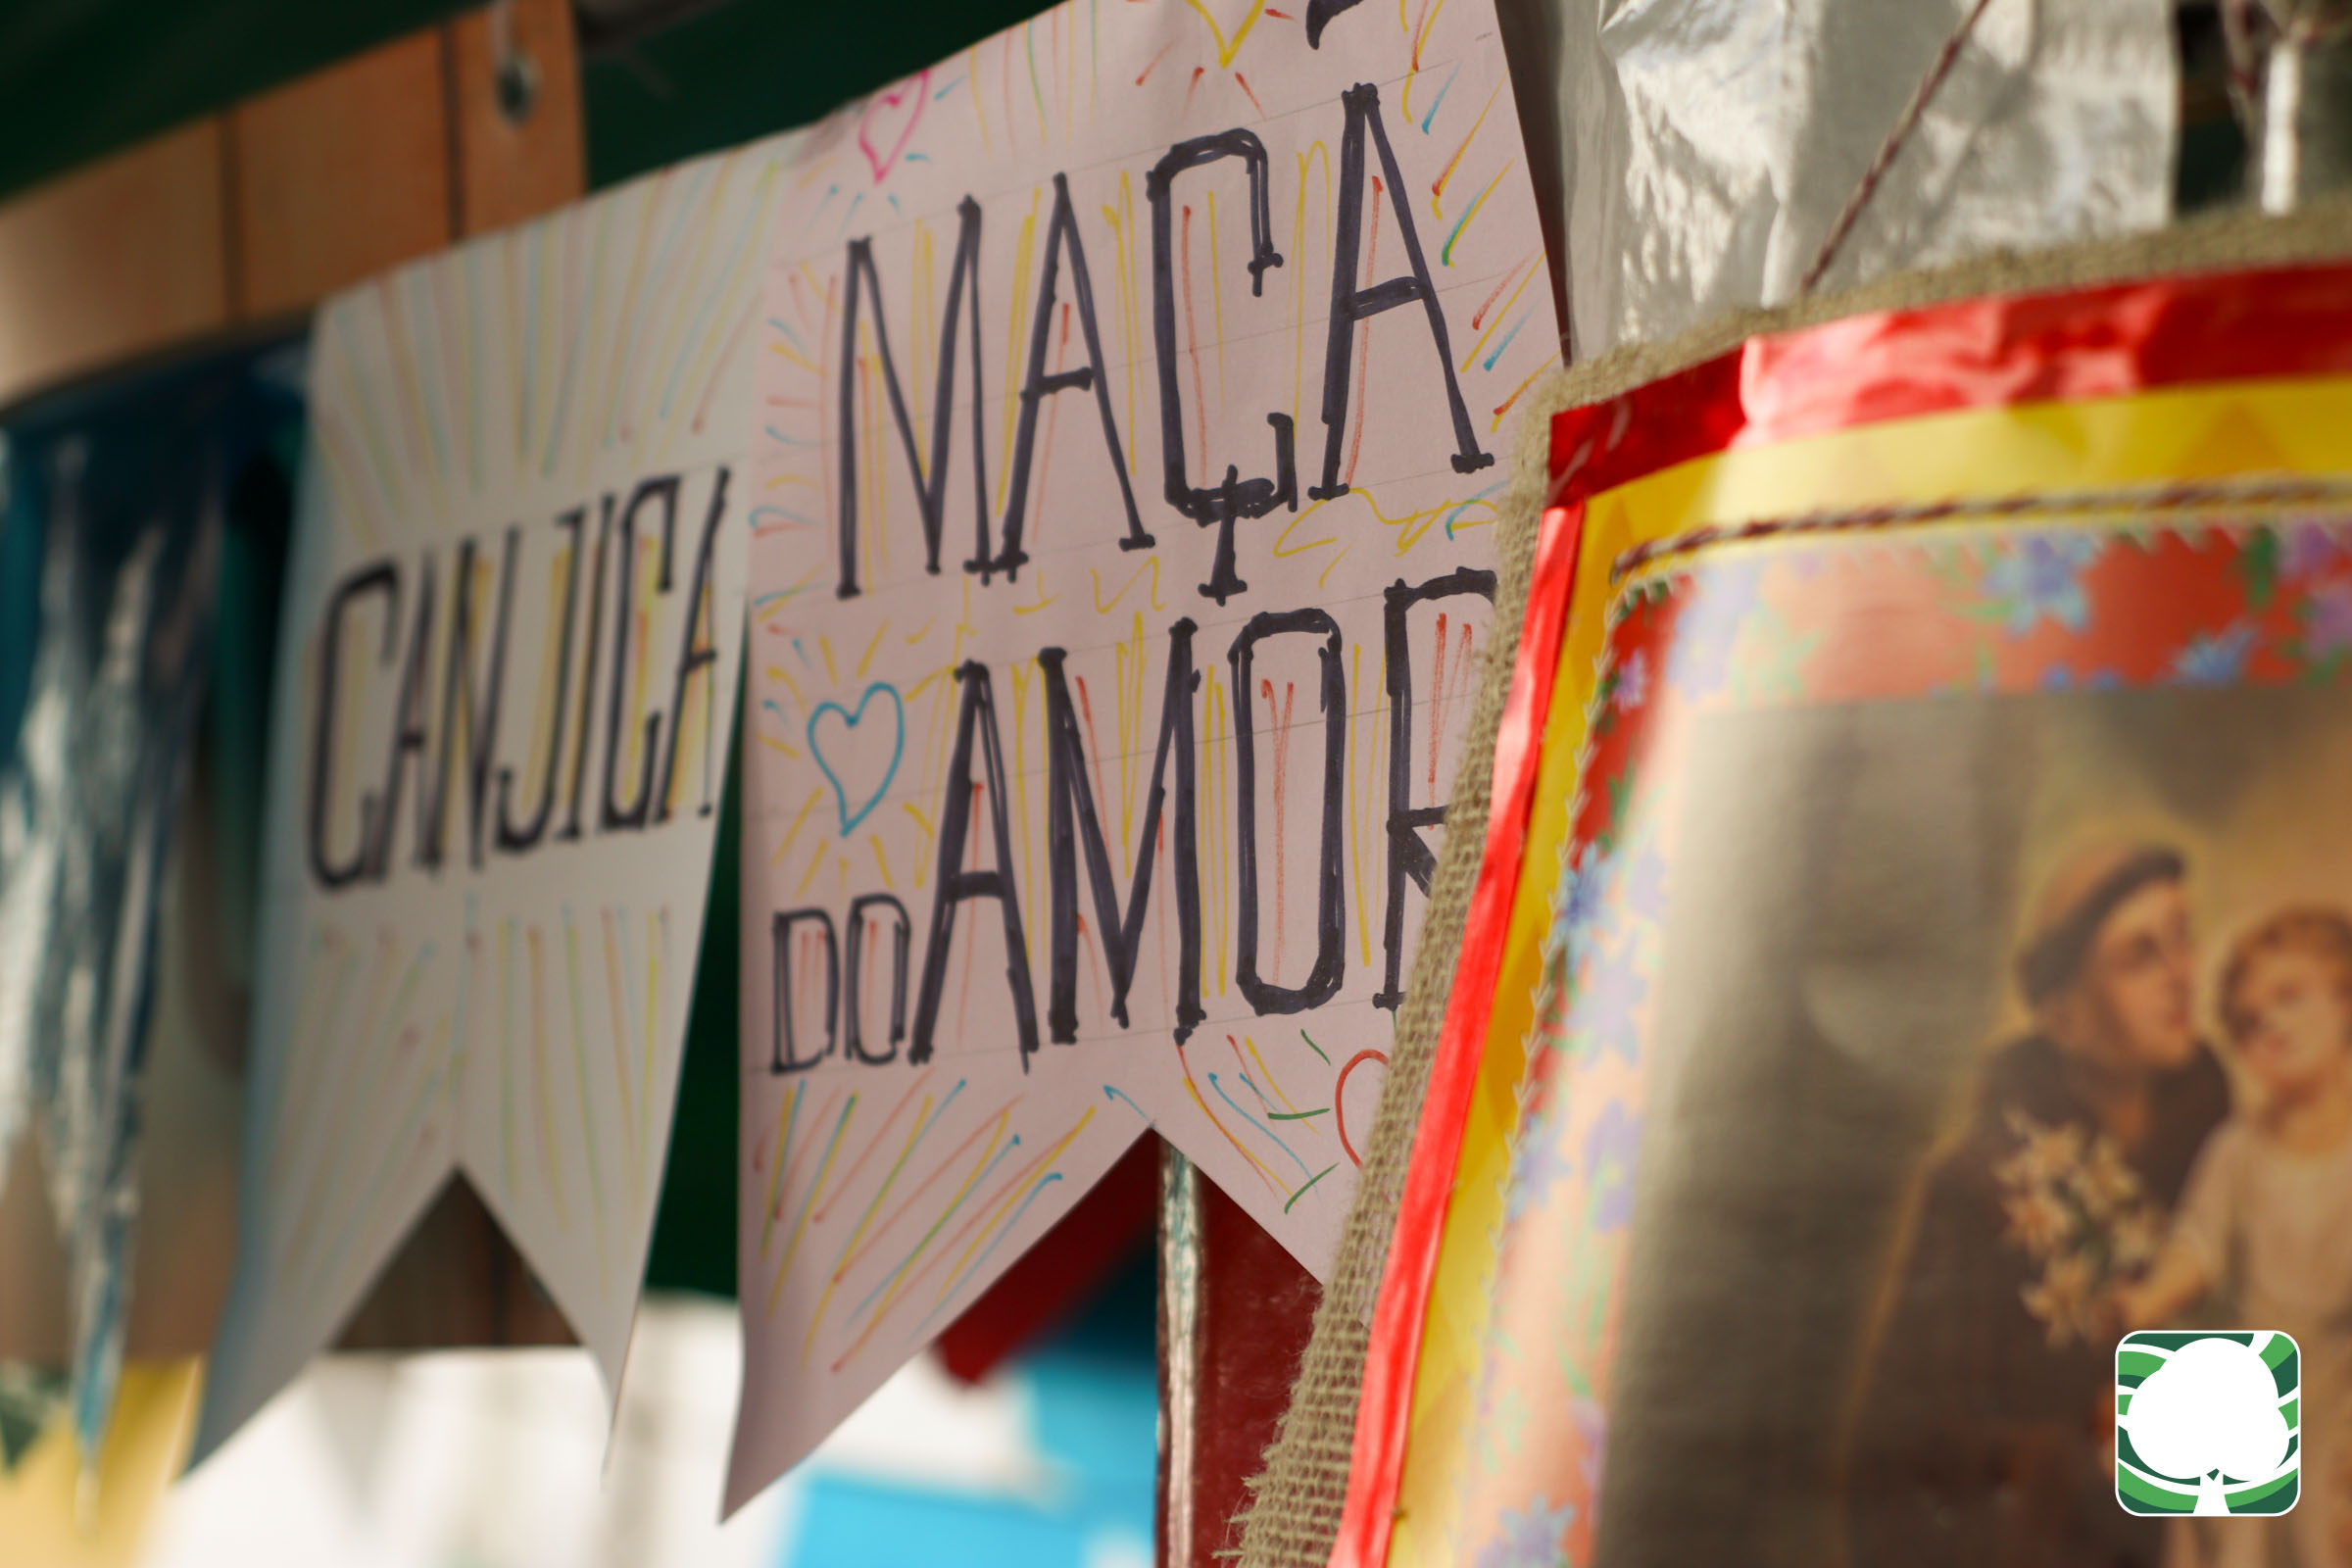 CANJICA
MAÇÃ
DO AMOR